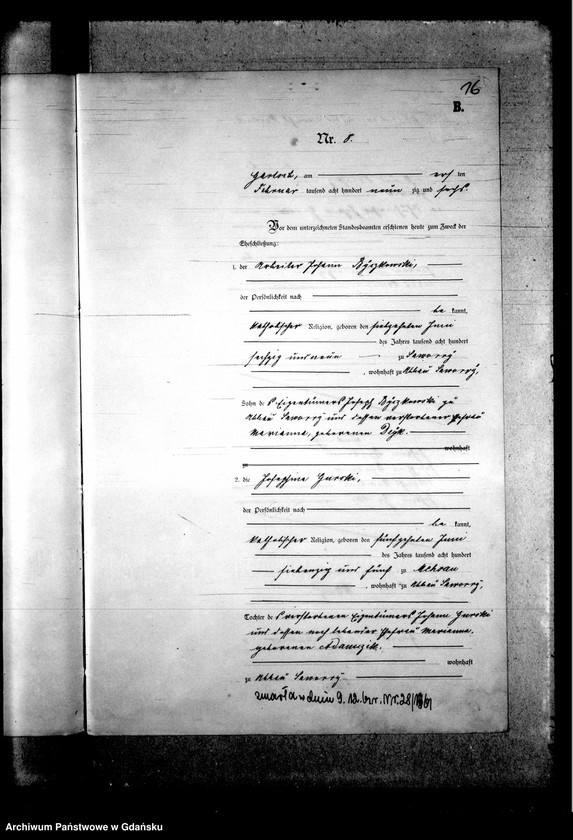 76
B.
Nr. 8.
am ersten
Februar tausend acht hundert neunzig und sechs.
Vor dem unterzeichneten Standesbeamten erschienen heute zum Zweck der
Eheschließung:
1. der Arbeiter Johann Ryszkowski,
der Persönlichkeit nach
bekannt,
katholischer Religion, geboren den siebzehnten Juni
des Jahres tausend acht hundert
sechzig und neun zu Sworry
, wohnhaft zu Abbau Sworry,
Sohn des Eigentümers Joseph Ryszkowski zu
Abbau Sworry und dessen verstorbener Ehefrau
Marianna, geborenen
wohnhaft
zu
2. die Josephine Gurski,
der Persönlichkeit nach
bekannt,
katholischer Religion, geboren den fünfzehnten Juni
des Jahres tausend acht hundert
siebenzig und fünf zu Mokrau
, wohnhaft zu Abbau Sworry,
Tochter des verstorbenen Eigentümers Johann Gurski
und dessen noch lebender Ehefrau Marianna,
geborenen Adamczik.
wohnhaft
zu Abbau Sworry
zmarła w dniu 9. 12. br. Nr. 28/1961
Archiwum Państwowe w Gdańsku